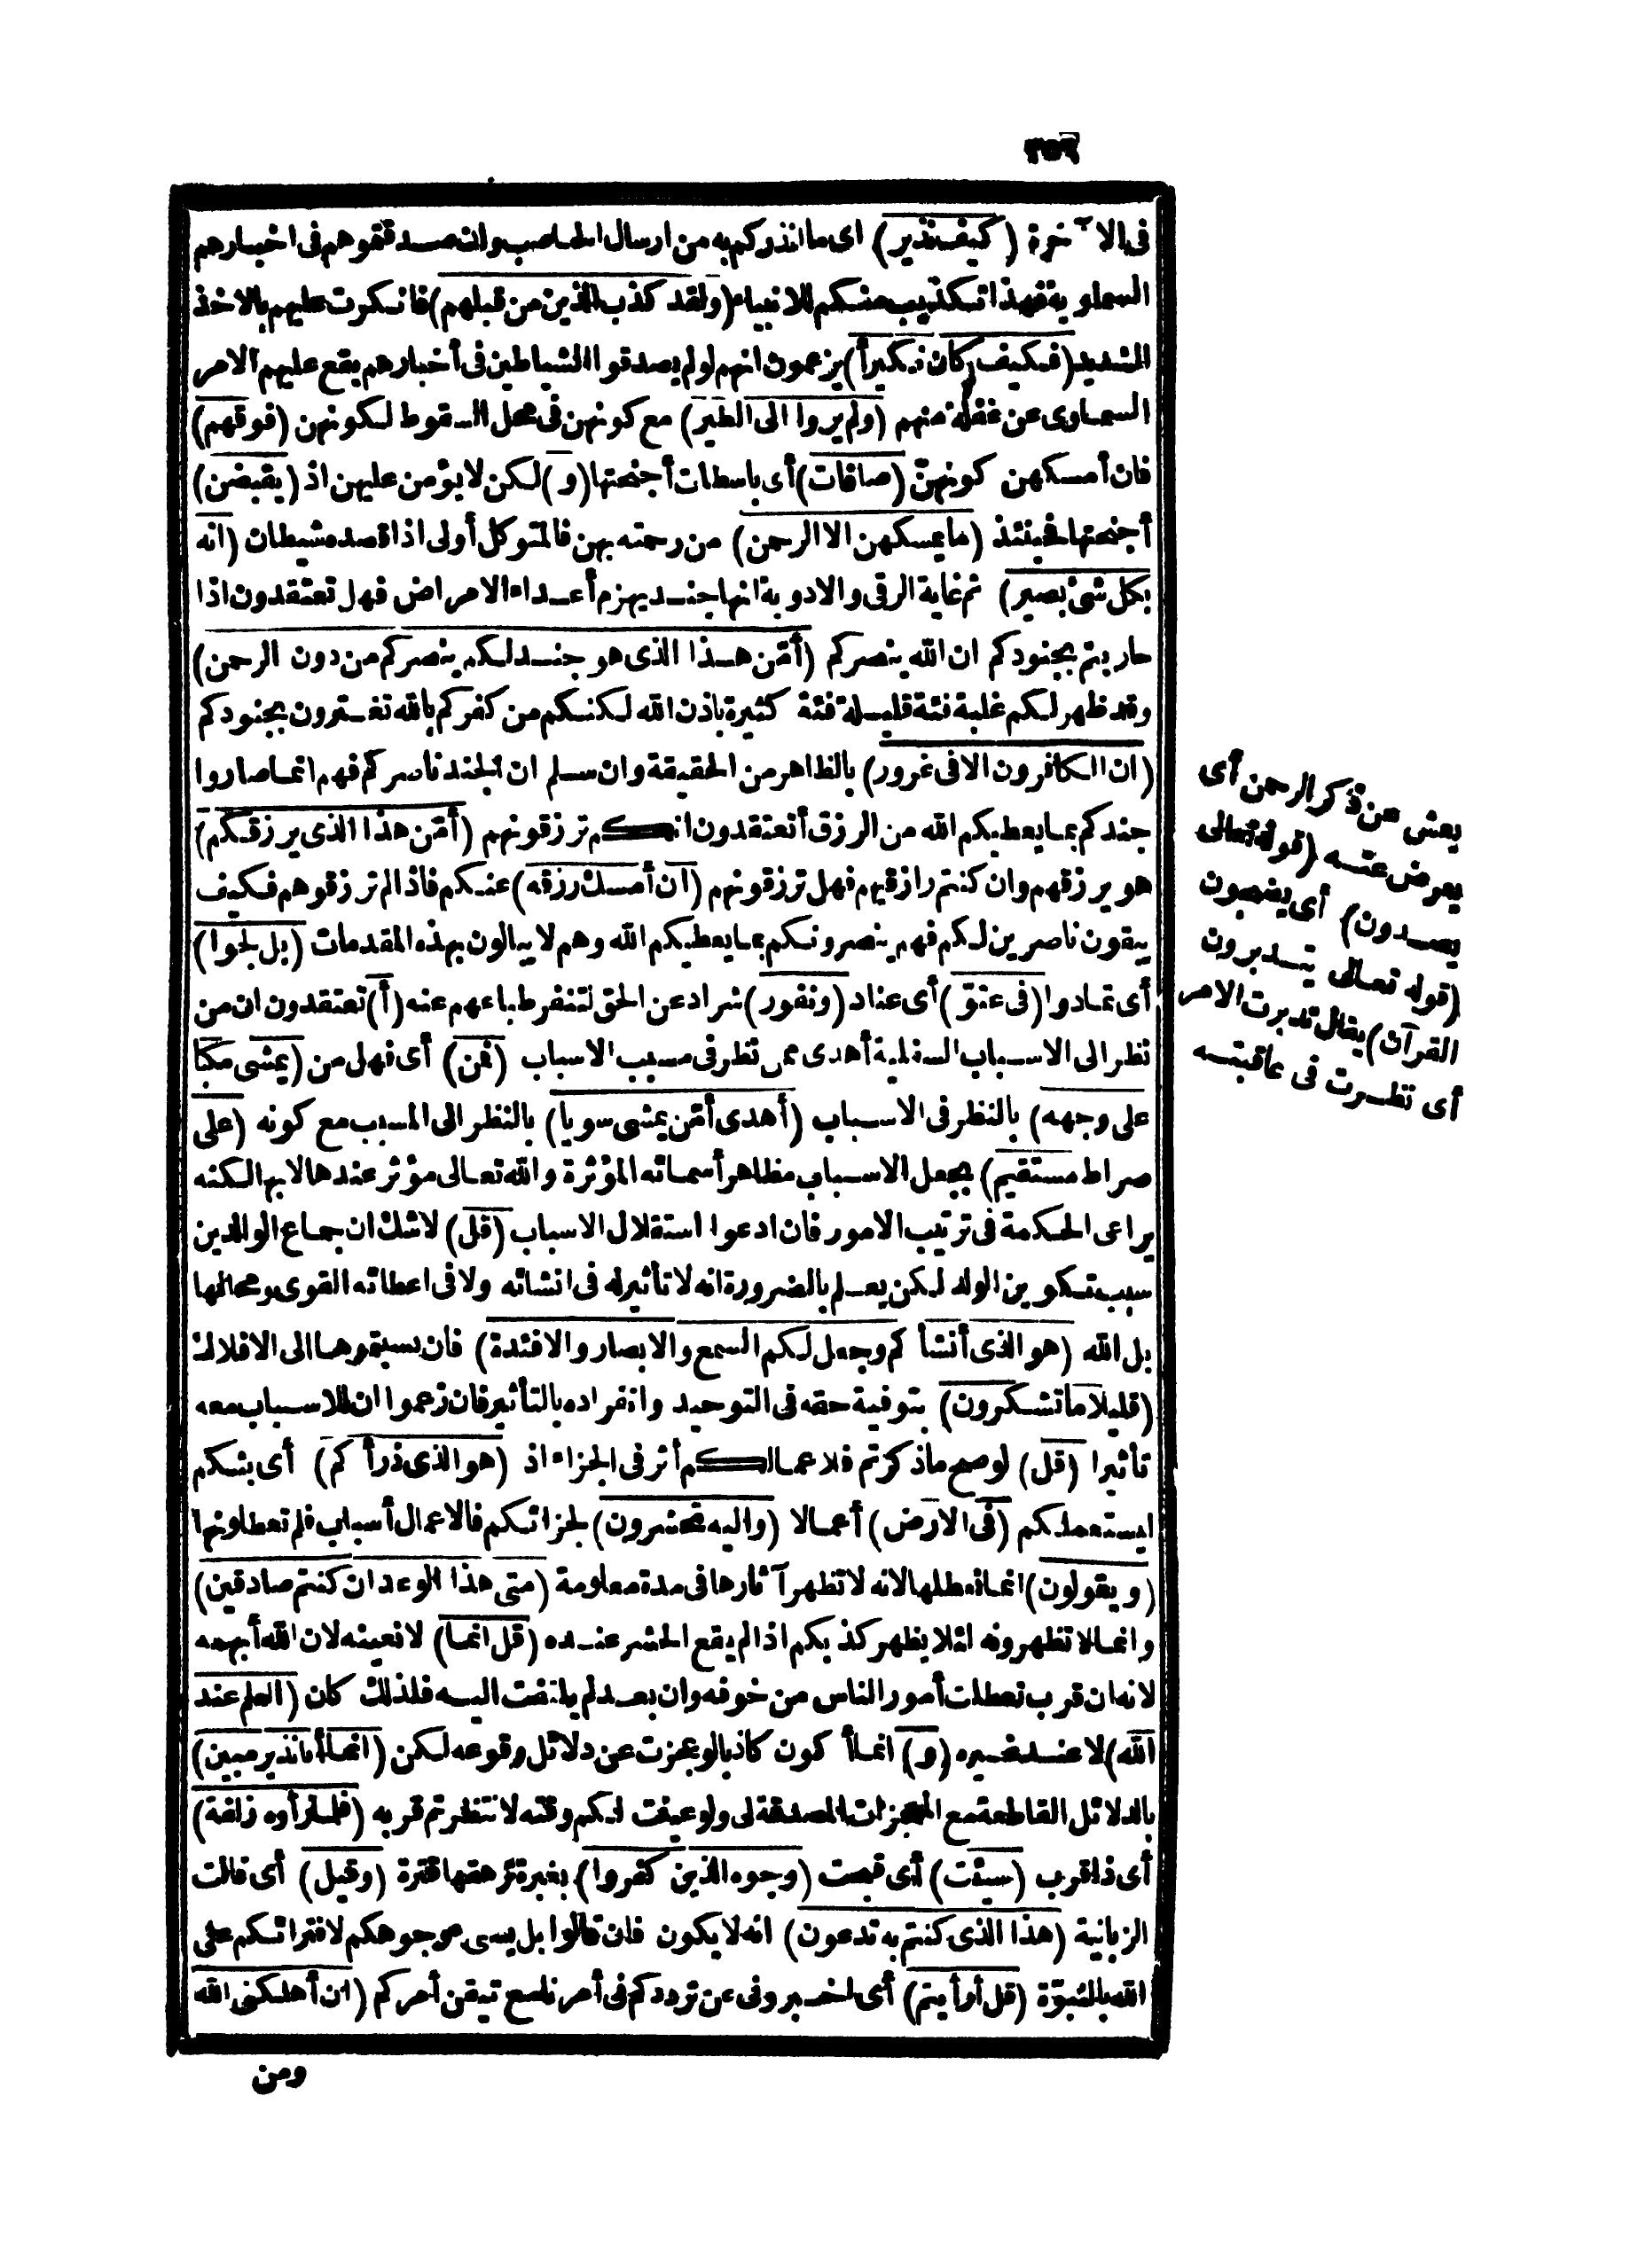 ٣٥٦
فى الآخرة (كيف نذير) اى ما انذركم به من ارسال الحاصب وان صدقتموهم فى اخبارهم
السماوية فهذا تكذيب منكم للانبياء (ولقد كذب الذين من قبلهم) فانكرت عليهم بالاخذ
الشديد (فكيف كان نكير أ) يزعمون انهم لو لم يصدقوا الشياطين فى أخبارهم يقع عليهم الامر
السماوى عن غفلة منهم (ولم يروا الى الطير) مع كونهن فى محل السقوط لكونهن (فوقهم)
فان أمسكهن كونهنّ (صافات) أى باسطات أجنحتها (و) لكن لا يؤمن عليهن اذ (يقبضن)
أجنحتها فحينئذ (ما يمسكهن الا الرحمن) من رحمته بهن فالمتوكل أولى اذا قصده شيطان (انه
بكل شئ بصير) ثم غاية الرقى والادوية انها جند يهزم أعداء الامراض فهل تعتقدون اذا
حاربتم بجنودكم ان الله ينصركم (أمّن هذا الذى هو جند لكم ينصركم من دون الرحمن)
وقد ظهر لكم غلبة فئة قليلة فئة كثيرة باذن الله لكنكم من كفركم بالله تغترون بجنودكم
(ان الكافرون الا فى غرور) بالظاهر من الحقيقة وان سلم ان الجند ناصركم فهم انما صاروا
جندكم بما يعطيكم الله من الرزق أتعتقدون انكم ترزقونهم (أمّن هذا الذى يرزقكم)
هو يرزقهم وان كنتم رازقيهم فهل ترزقونهم (ان أمسك رزقه) عنكم فاذا لم ترزقوهم فكيف
يبقون ناصرين لكم فهم ينصرونكم بما يعطيكم الله وهم لا يبالون بهذه المقدمات (بل لجوا)
أى تمادوا (فى عتوّ) أى عناد (ونفور) شراد عن الحق لتنفر طباعهم عنه (أ) تعتقدون ان من
نظر الى الاسباب السفلية أهدى ممن نظر فى مسبب الاسباب (فمن) أى فهل من (يمشى مكبا
على وجهه) بالنظر فى الاسباب (أهدى أمّن يمشى سويا) بالنظر الى المسبب مع كونه (على
صراط مستقيم) بجعل الاسباب مظاهر أسمائه المؤثرة والله تعالى مؤثر عندها لا بها لكنه
يراعى الحكمة فى ترتيب الامور فان ادعوا استقلال الاسباب (قل) لا شك ان جماع الوالدين
سبب تكوين الولد لكن يعلم بالضرورة انه لا تأثير له فى انشائه ولا فى اعطائه القوى ومحالها
بل الله (هو الذى أنشأكم وجعل لكم السمع والابصار والافئدة) فان نسبتموها الى الافلاك
(قليلا ما تشكرون) بتوفية حقه فى التوحيد وانفراده بالتأثير فان زعموا ان للاسباب معه
تأثيرا (قل) لو صح ما ذكرتم فلاعمالكم أثر فى الجزاء اذ (هو الذى ذرأكم) أى بثكم
ليستعملكم (فى الارض) أعمالا (واليه تحشرون) لجزائكم فالاعمال أسباب فلم تعطلونها
(ويقولون) انما نعطلها لانه لا تظهر آثارها فى مدة معلومة (متى هذا الوعد ان كنتم صادقين)
وانما لا تظهرونه لئلا يظهر كذبكم اذا لم يقع الحشر عنده (قل انما) لا نعينه لان الله أبهمه
لانه ان قرب تعطلت أمور الناس من خوفه وان بعد لم يلتفت اليه فلذلك كان (العلم عند
الله) لا عند غيره (و) انما أكون كاذبا لو عجزت عن دلائل وقوعه لكن (انما أنا نذير مبين)
بالدلائل القاطعة مع المعجزات المصدقة لى ولو عينت لكم وقته لانتظرتم قربه (فلما رأوه زلفة)
أى ذا قرب (سيئت) أى قبحت (وجوه الذين كفروا) بغبرة ترهقها قترة (وقيل) أى قالت
الزبانية (هذا الذى كنتم به تدعون) انه لا يكون فان قالوا بل يسىء وجوهكم لافترائكم على
الله بالنبوّة (قل أرأيتم) أى اخبرونى عن ترددكم فى أمرنا مع تيقن أمركم (ان أهلكنى الله
ومن
يعش عن ذكر الرحمن أى
يعرض عنه (قوله تعالى
يصدون) أى يضجون
(قوله تعالى يتدبرون
القرآن) يقال تدبرت الامر
أى نظرت فى عاقبته